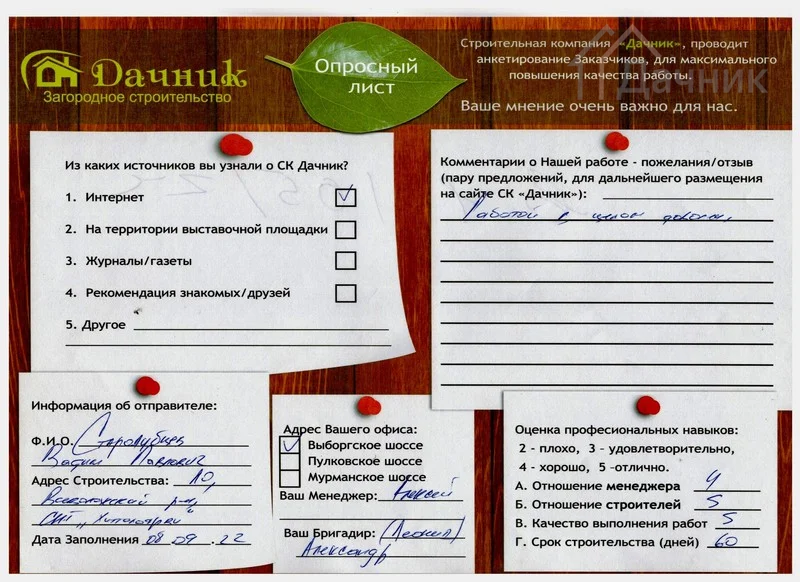 Дачник
Загородное строительство
Опросный
лист
Строительная компания «Дачник», проводит
анкетирование Заказчиков, для максимального
повышения качества работы.
Ваше мнение очень важно для нас.
Дачник
Из каких источников вы узнали о СК Дачник?
1. Интернет
2. На территории выставочной площадки
3. Журналы/газеты
4. Рекомендация знакомых/друзей
5. Другое
Комментарии о Нашей работе - пожелания/отзыв
(пару предложений, для дальнейшего размещения
на сайте СК «Дачник»):
Работой в целом доволен.
Информация об отправителе:
Ф.И.О. Старолубцев
Вадим Павлович
Адрес Строительства: ЛО,
р-н,
СНТ
Дата Заполнения 08.09.22
Адрес Вашего офиса:
Выборгское шоссе
Пулковское шоссе
Мурманское шоссе
Ваш Менеджер: Алексей
Ваш Бригадир: (Леонид)
Александр
Оценка профессиональных навыков:
2 - плохо, 3 - удовлетворительно,
4 - хорошо, 5 -отлично.
А. Отношение менеджера 4
Б. Отношение строителей 5
В. Качество выполнения работ 5
Г. Срок строительства (дней) 60